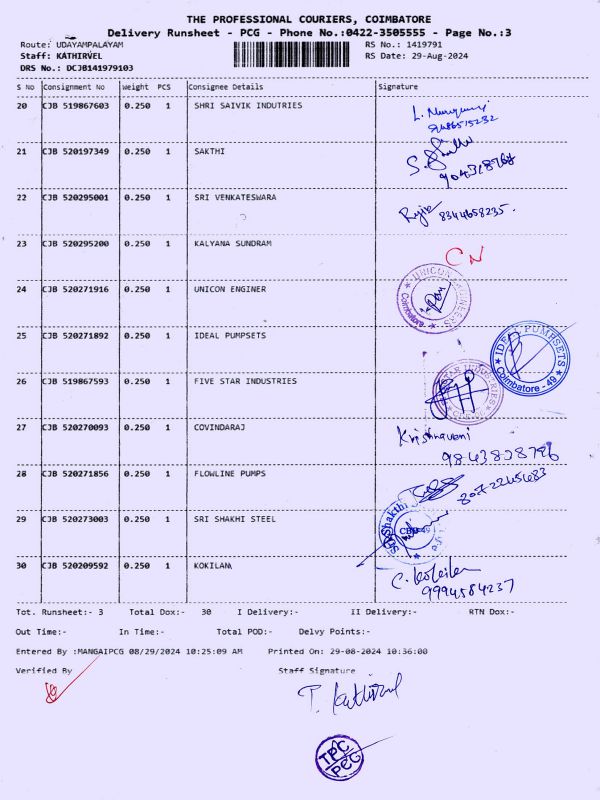 THE PROFESSIONAL COURIERS, COIMBATORE
Delivery Runsheet - PCG - Phone No.:0422-3505555 - Page No.:3
Route: UDAYAMPALAYAM
RS No.: 1419791
Staff: KATHIRVEL
RS Date: 29-Aug-2024
DRS No.: DCJB141979103
S No Consignment No Weight PCS Consignee Details Signature
20 CJB 519867603 0.250 1 SHRI SAIVIK INDUTRIES
21 CJB 520197349 0.250 1 SAKTHI
22 CJB 520295001 0.250 1 SRI VENKATESWARA
8344658235.
23 CJB 520295200 0.250 1 KALYANA SUNDRAM
CN
24 CJB 520271916 0.250 1 UNICON ENGINER
Coimbatore
25 CJB 520271892 0.250 1 IDEAL PUMPSETS
IDEAL PUMPSETS
Coimbatore - 49
26 CJB 519867593 0.250 1 FIVE STAR INDUSTRIES
27 CJB 520270093 0.250 1 COVINDARAJ
Krishnaveni
9843828796
28 CJB 520271856 0.250 1 FLOWLINE PUMPS
29 CJB 520273003 0.250 1 SRI SHAKHI STEEL
30 CJB 520209592 0.250 1 KOKILAM
9994584237
Tot. Runsheet:- 3 Total Dox:- 30 I Delivery:- II Delivery:- RTN Dox:-
Out Time:- In Time:- Total POD:- Delvy Points:-
Entered By :MANGAIPCG 08/29/2024 10:25:09 AM Printed On: 29-08-2024 10:36:00
Verified By Staff Signature
TPC
PCG